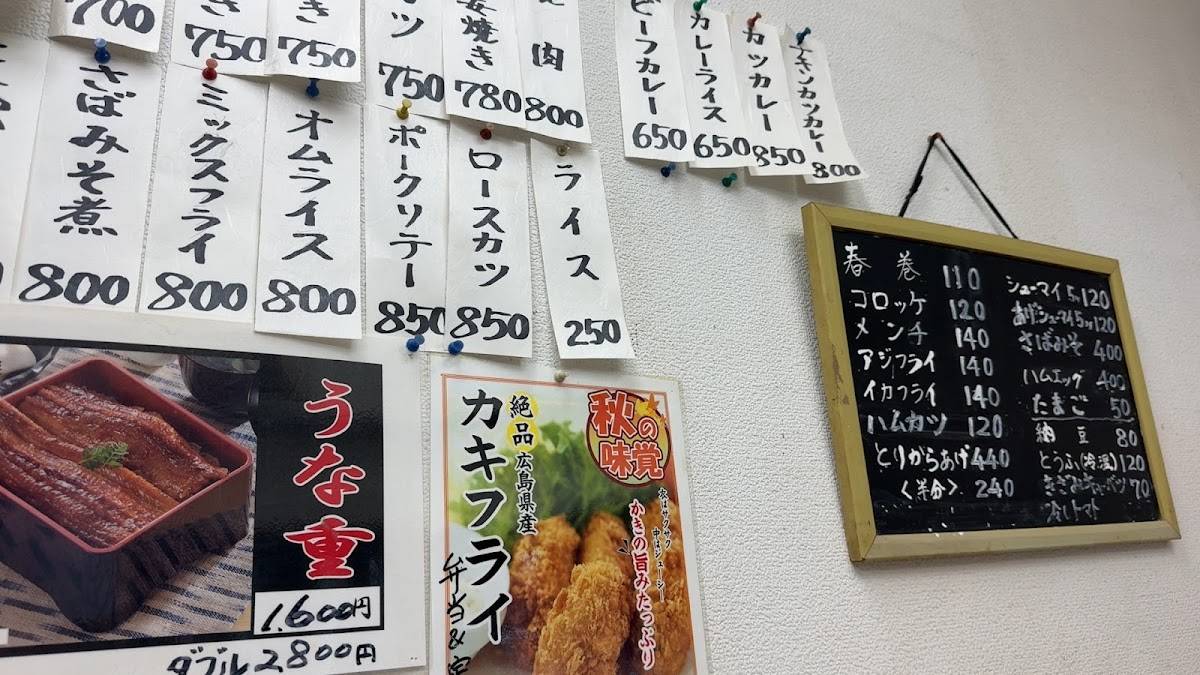 700
き
750
き
750
ツ
750
焼き
780
肉
800
さばみそ煮
800
ミックスフライ
800
オムライス
800
ポークソテー
850
ロースカツ
850
ライス
250
ビーフカレー
650
カレーライス
650
カツカレー
850
チキンカツカレー
800
うな重
1,600円
ダブル2,800円
秋の味覚
絶品
広島県産
カキフライ
衣はサクサク
中はジューシー
かきの旨みたっぷり
弁当&定
春巻 110
コロッケ 120
メンチ 140
アジフライ 140
イカフライ 140
ハムカツ 120
とりからあげ 440
〈半分〉 240
シューマイ5ケ 120
あげシューマイ5ケ 120
さばみそ 400
ハムエッグ 400
たまご 50
納豆 80
とうふ(冷温) 120
きざみキャーベツ 70
冷しトマト